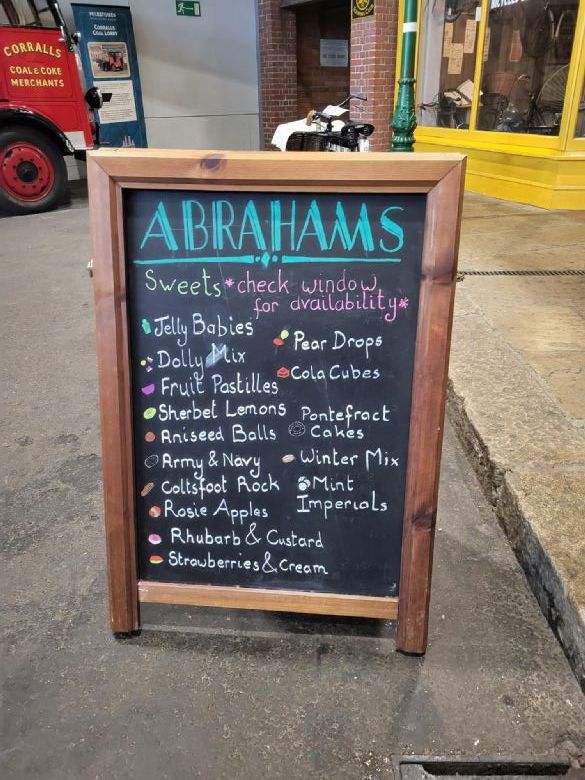 CORRALLS
COAL & COKE
MERCHANTS
CORRALLS
COAL LORRY
ABRAHAMS
Sweets *check window
for availability*
Jelly Babies
Dolly Mix
Fruit Pastilles
Sherbet Lemons
Aniseed Balls
Army & Navy
Coltsfoot Rock
Rosie Apples
Rhubarb & Custard
Strawberries & Cream
Pear Drops
Cola Cubes
Pontefract
Cakes
Winter Mix
Mint
Imperials